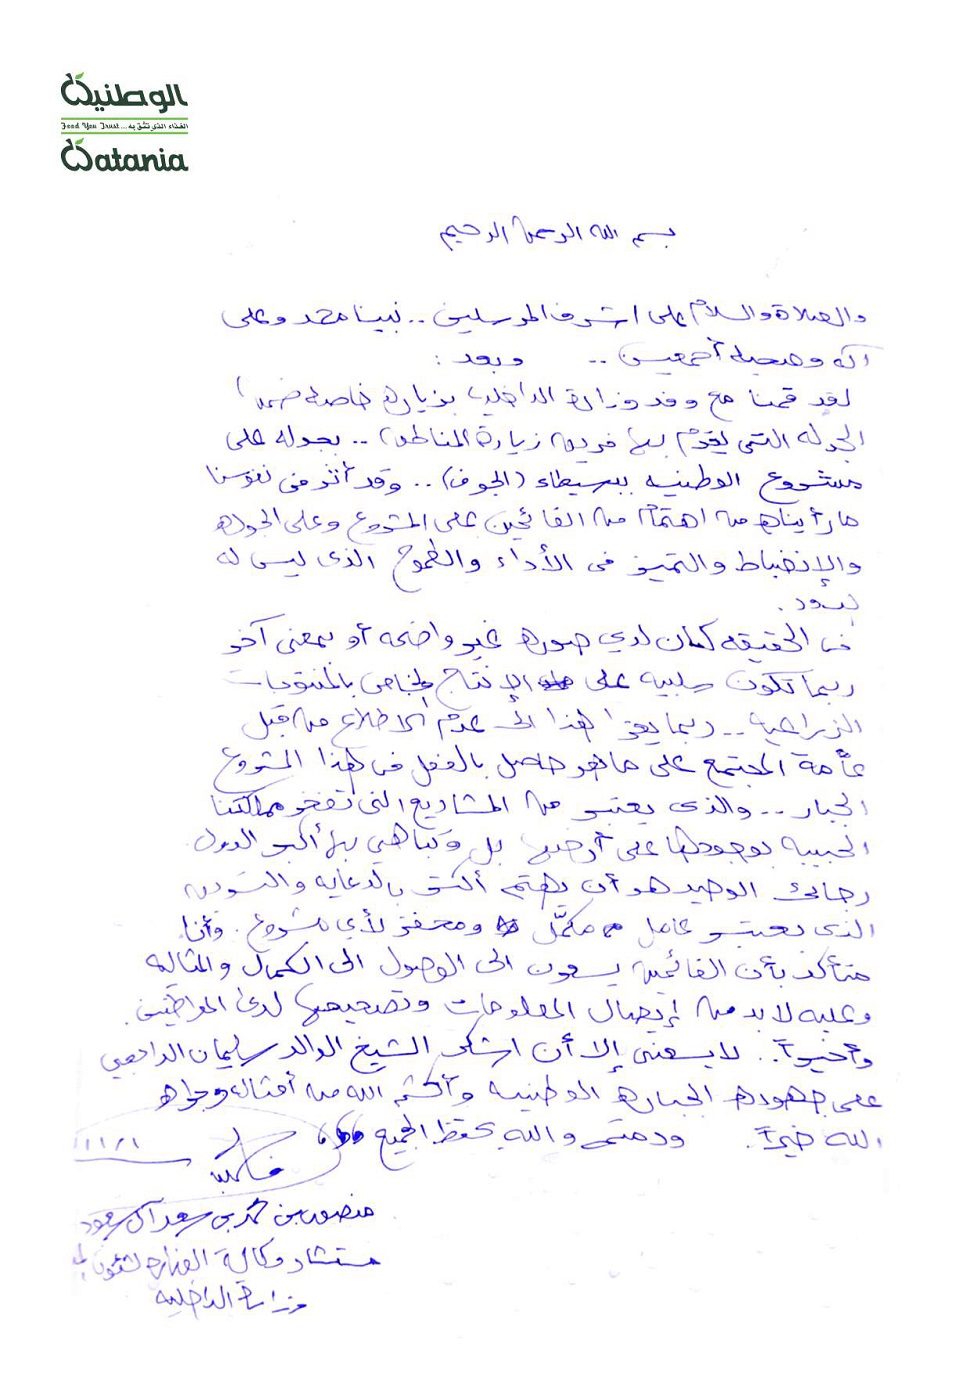 الوطنية
Food You Trust... الغذاء الذي تثق به
Watania
بسم الله الرحمن الرحيم
والصلاة والسلام على اشرف المرسلين .. نبينا محمد وعلى
آله وصحبه أجمعين .. وبعد :
لقد قمنا مع وفد وزارة الداخليه بزياره خاصه ضمن
الجوله التي يقوم بها فريق زيارة المناطق .. بجوله على
مشروع الوطنيه ببسيطاء (الجوف) .. وقد أثر في نفوسنا
ما رأيناه من اهتمام من القائمين على المشروع وعلى الجوده
والإنضباط والتميز في الأداء والطموح الذي ليس له
حدود .
في الحقيقه كان لدي صوره غير واضحه أو بمعنى آخر
ربما تكون سلبيه على الإنتاج الخاص بالمنتوجات
الزراعيه .. ربما يعزا هذا الى عدم الاطلاع من قبل
عامة المجتمع على ما هو حاصل بالفعل في هذا المشروع
الجبار .. والذي يعتبر من المشاريع التي تفخر مملكتنا
الحبيبه بوجودها على أرضها بل وتباهي بها أكبر الدول
رجائي الوحيد هو أن يهتم أكثر بالدعايه والتسويق
الذي يعتبر عامل مكمّل ومحفز لأي مشروع . وأنا
متأكد بأن القائمين يسعون الى الوصول الى الكمال والمثاليه
وعليه لابد من إيصال المعلومات وتصحيحها لدى المواطنين .
وأخيراً .. لا يسعني إلا أن اشكر الشيخ الوالد سليمان الراجحي
على جهوده الجباره الوطنيه وأكثر الله من أمثاله وجزاه
الله خيراً . ودمتم والله يحفظ الجميع ،،،
منصور بن محمد بن سعد آل سعود
مستشار وكالة الوزارة لشئون
وزارة الداخليه